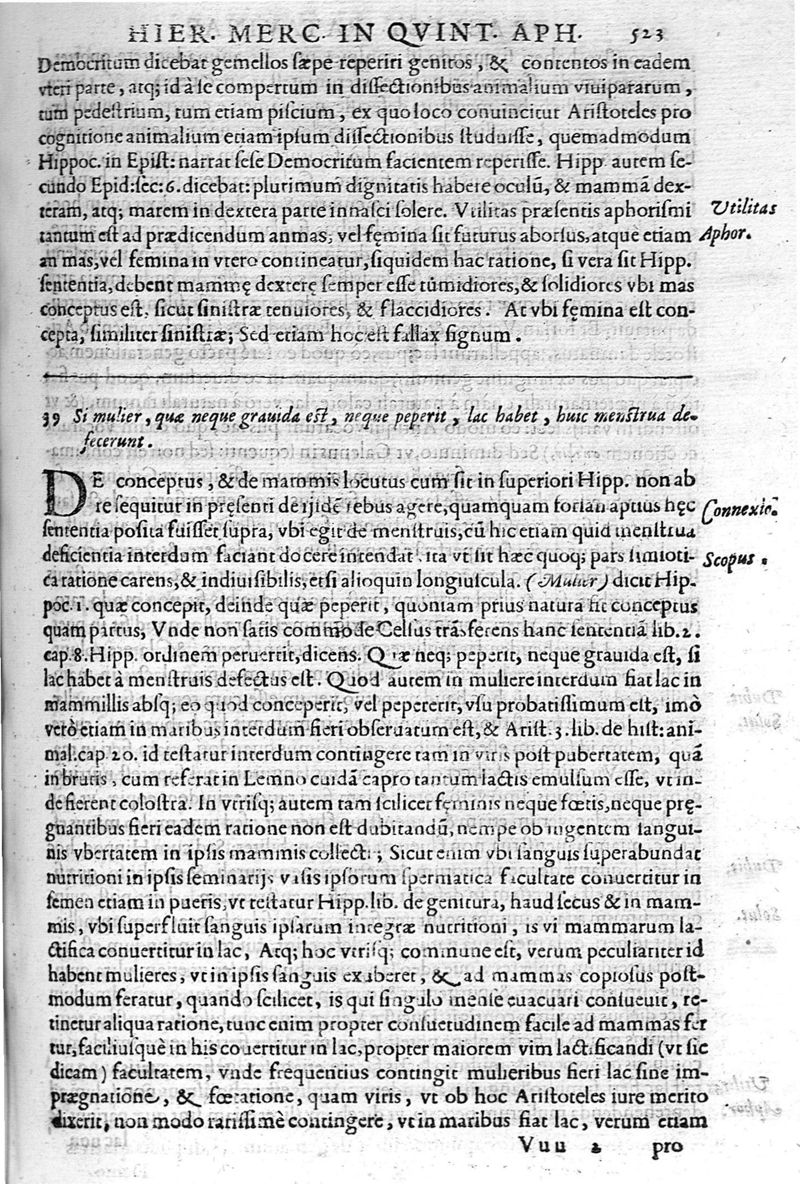 HIER. MERC. IN QVINT. APH. 523
Democritum dicebat gemellos sæpe reperiri genitos, & contentos in eadem
vteri parte, atq; id à se compertum in dissectionibus animalium viuipararum,
tum pedestrium, tum etiam piscium, ex quo loco conuincitur Aristoteles pro
cognitione animalium etiam ipsum dissectionibus studuisse, quemadmodum
Hippoc. in Epist: narrat sese Democritum facientem reperisse. Hipp. autem se-
cundo Epid: sec: 6. dicebat: plurimum dignitatis habere oculũ, & mammã dex-
teram, atq; marem in dextera parte innasci solere. Vtilitas præsentis aphorismi
Vtilitas
tantum est ad prædicendum an mas, vel fęmina sit futurus abortus, atque etiam
Aphor.
an mas, vel femina in vtero contineatur, siquidem hac ratione, si vera sit Hipp.
sententia, debent mammę dexterę semper esse tùmidiores, & solidiores vbi mas
conceptus est, sicut sinistræ tenuiores, & flaccidiores. At vbi fęmina est con-
cepta, similiter sinistræ; Sed etiam hoc est fallax signum.
39 Si mulier, quæ neque grauida est, neque peperit, lac habet, huic menstrua de-
fecerunt.
DE conceptus, & de mammis locutus cum sit in superiori Hipp. non ab
re sequitur in pręsenti de ijsdẽ rebus agere, quamquam forsan aptius hęc
Connexio.
sententia posita fuisset supra, vbi egit de menstruis, cũ hic etiam quid menstrua
deficientia interdum faciant docere intendat, ita vt sit hæc quoq; pars simioti-
Scopus.
ca ratione carens, & indiuisibilis, etsi alioquin longiuscula. (Mulier) dicit Hip-
poc. 1. quæ concepit, deinde quæ peperit, quoniam prius natura fit conceptus
quam partus, Vnde non satis commode Celsus trãsferens hanc sententiã lib. 2.
cap. 8. Hipp. ordinem peruertit, dicens. Quæ neq; peperit, neque grauida est, si
lac habet à menstruis defectus est. Quod autem in muliere interdum fiat lac in
mammillis absq; eo quod conceperit, vel pepererit, vsu probatissimum est, imò
verò etiam in maribus interdum fieri obseruatum est, & Arist. 3. lib. de hist: ani-
mal. cap. 20. id testatur interdum contingere tam in viris post pubertatem, quã
in brutis, cum referat in Lemno cuidã capro tantum lactis emulsum esse, vt in-
de fierent colostra. In vtrisq; autem tam scilicet fęminis neque fœtis, neque prę-
gnantibus fieri eadem ratione non est dubitandũ, nempe ob ingentem sangui-
nis vbertatem in ipsis mammis collecti; Sicut enim vbi sanguis superabundat
nutritioni in ipsis seminarijs vasis ipsorum spermatica facultate conuertitur in
semen etiam in pueris, vt testatur Hipp. lib. de genitura, haud secus & in mam-
mis, vbi superfluit sanguis ipsarum integræ nutritioni, is vi mammarum la-
ctifica conuertitur in lac, Atq; hoc vtrisq; commune est, verum peculiariter id
habent mulieres, vt in ipsis sanguis exuberet, & ad mammas copiosus post-
modum feratur, quando scilicet, is qui singulo mense euacuari consueuit, re-
tinetur aliqua ratione, tunc enim propter consuetudinem facile ad mammas fer
tur, faciliusquè in his couertitur in lac, propter maiorem vim lactificandi (vt sic
dicam) facultatem, vnde frequentius contingit mulieribus fieri lac sine im-
prægnatione, & fœtatione, quam viris, vt ob hoc Aristoteles iure merito
dixerit, non modo rarissimè contingere, vt in maribus fiat lac, verum etiam
Vuu 2 pro